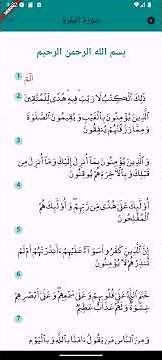 سورة البقرة
بسم الله الرحمن الرحيم
1 الٓمٓ
2 ذَٰلِكَ ٱلْكِتَٰبُ لَا رَيْبَ فِيهِ هُدًى لِّلْمُتَّقِينَ
ٱلَّذِينَ يُؤْمِنُونَ بِٱلْغَيْبِ وَيُقِيمُونَ ٱلصَّلَوٰةَ
3 وَمِمَّا رَزَقْنَٰهُمْ يُنفِقُونَ
وَٱلَّذِينَ يُؤْمِنُونَ بِمَآ أُنزِلَ إِلَيْكَ وَمَآ أُنزِلَ مِن
4 قَبْلِكَ وَبِٱلْءَاخِرَةِ هُمْ يُوقِنُونَ
أُو۟لَٰٓئِكَ عَلَىٰ هُدًى مِّن رَّبِّهِمْ وَأُو۟لَٰٓئِكَ هُمُ
5 ٱلْمُفْلِحُونَ
إِنَّ ٱلَّذِينَ كَفَرُوا۟ سَوَآءٌ عَلَيْهِمْ ءَأَنذَرْتَهُمْ أَمْ لَمْ
6 تُنذِرْهُمْ لَا يُؤْمِنُونَ
خَتَمَ ٱللَّهُ عَلَىٰ قُلُوبِهِمْ وَعَلَىٰ سَمْعِهِمْ وَعَلَىٰٓ أَبْصَٰرِهِمْ
7 غِشَٰوَةٌ وَلَهُمْ عَذَابٌ عَظِيمٌ
وَمِنَ ٱلنَّاسِ مَن يَقُولُ ءَامَنَّا بِٱللَّهِ وَبِٱلْيَوْمِ